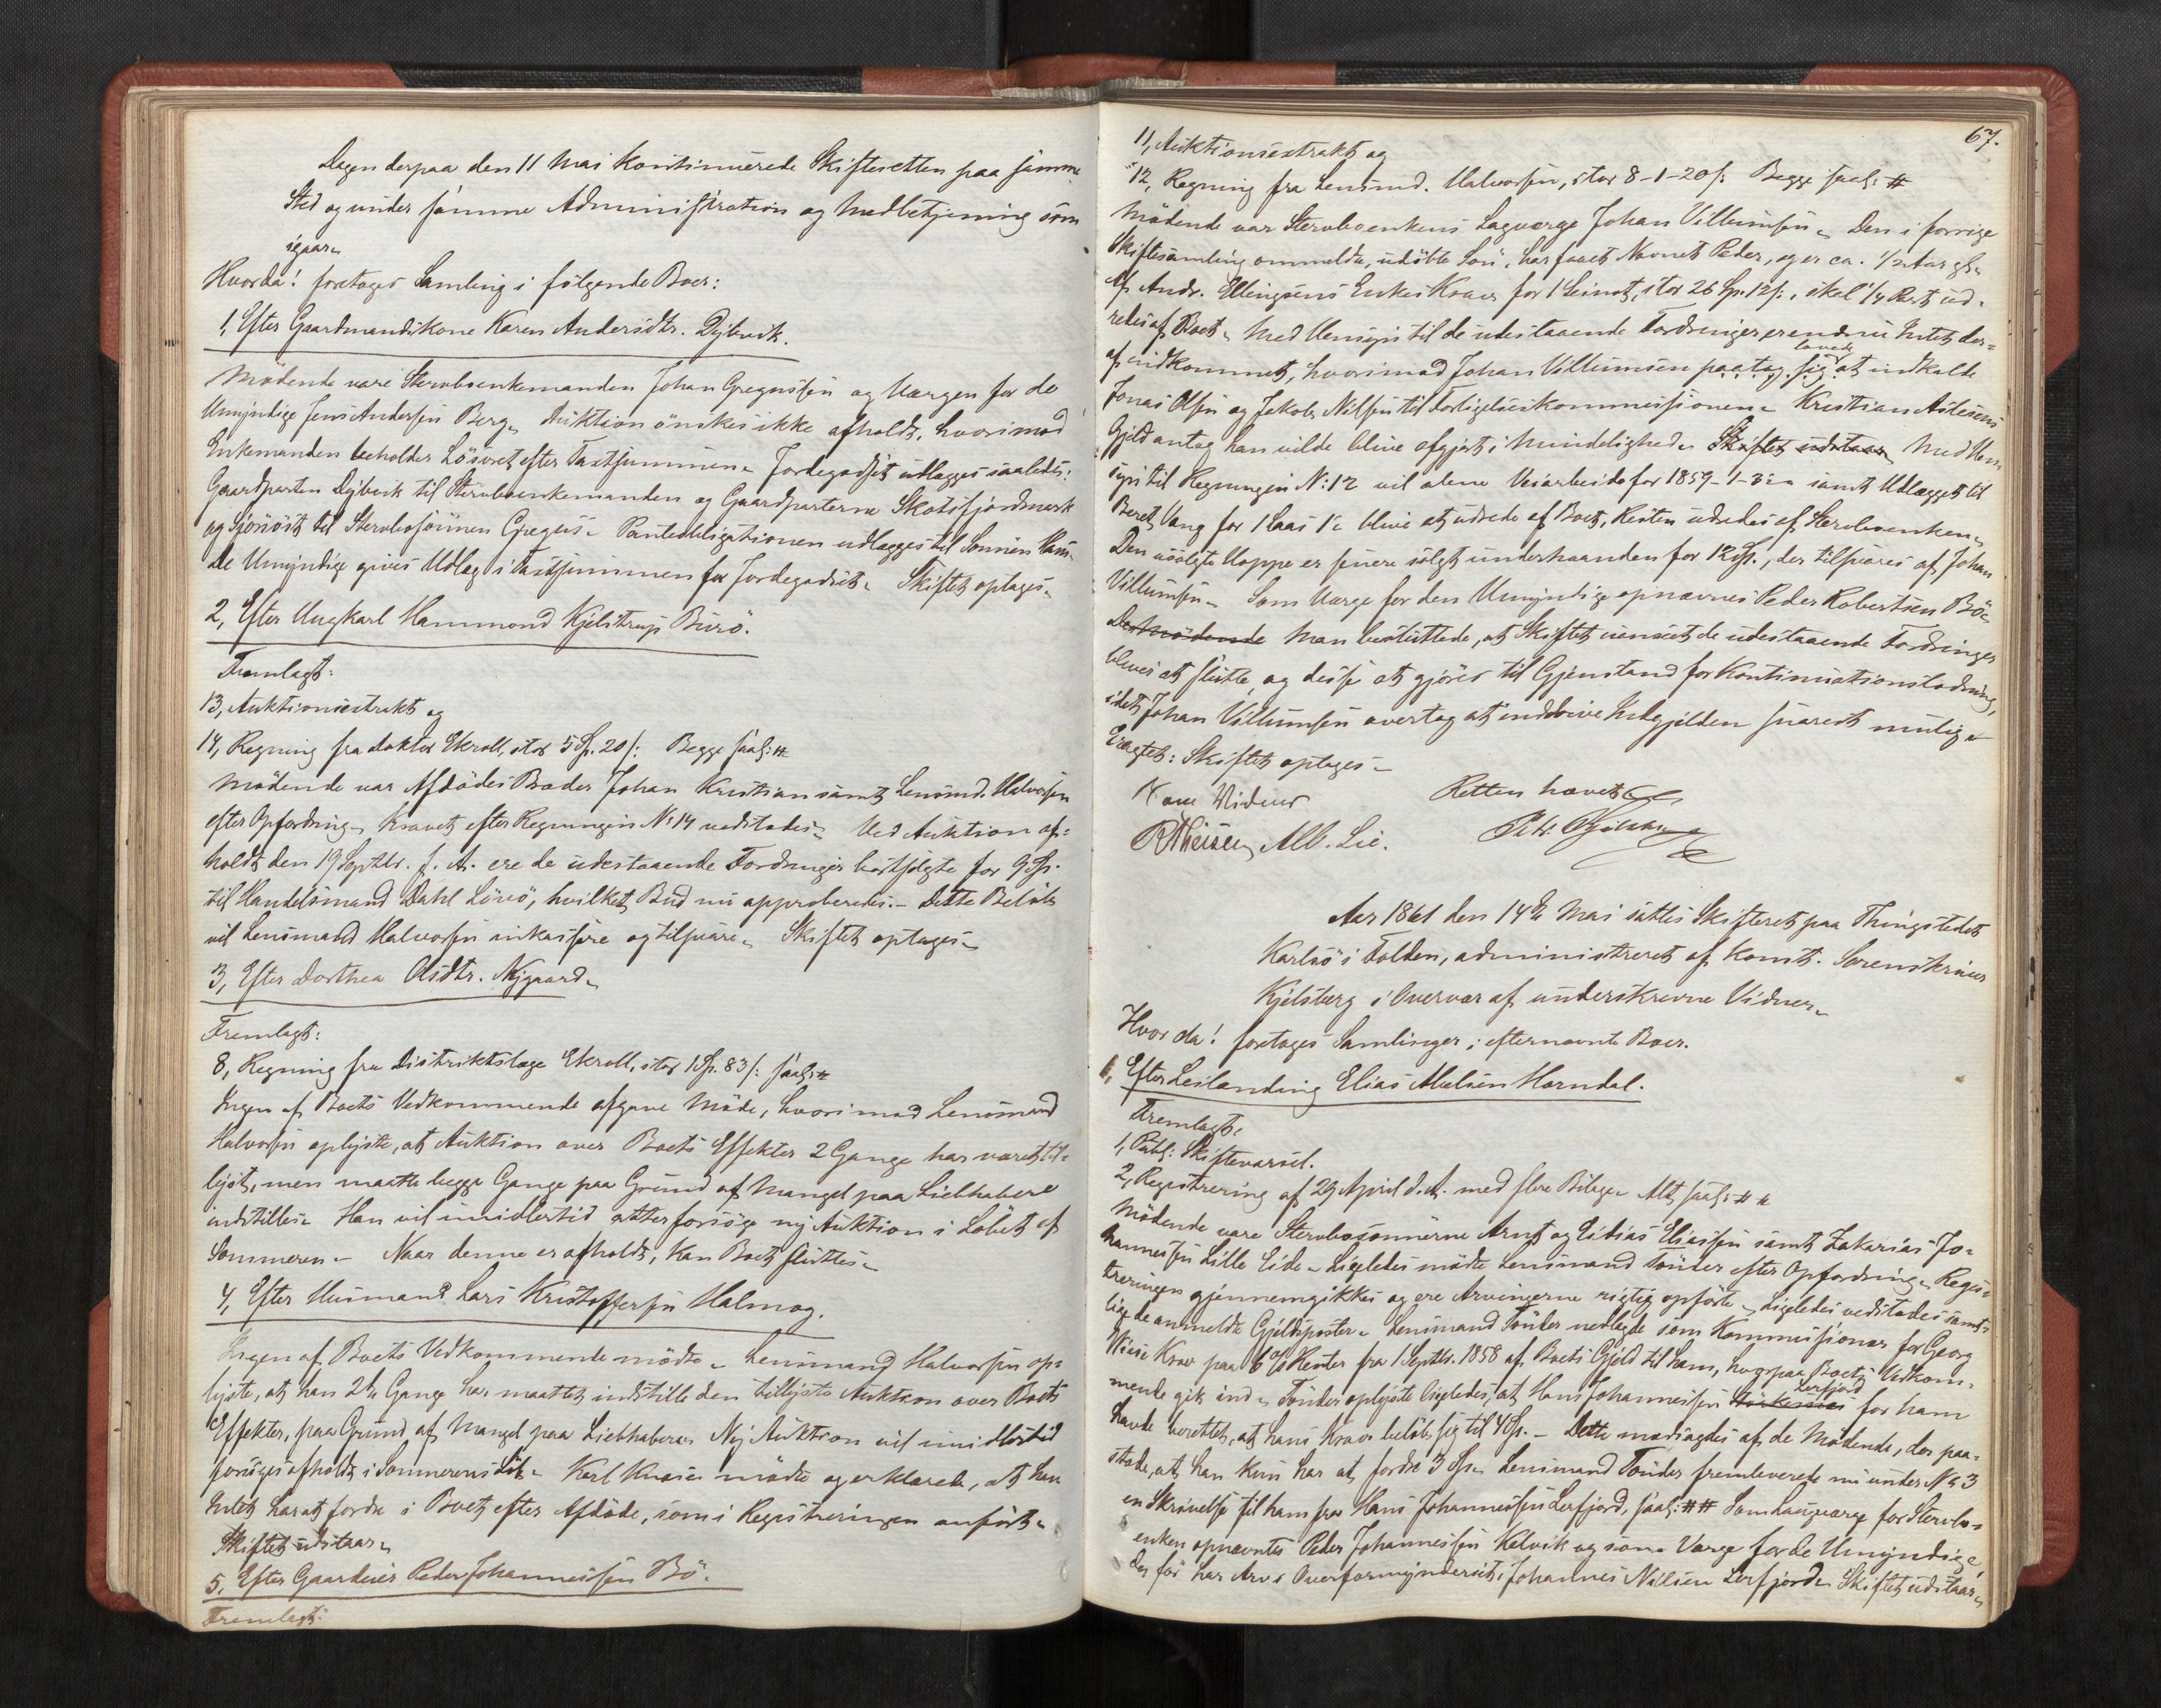 Dagen derpaa den 11 Mai kontinuerede Skifteretten paa samme
Sted og under samme Administration og Medbetjening som
igaar.
Hvorda! foretoges Samling i følgende Boer:
1, Efter Gaardmandskone Karen Andersdtr. Dybvik.
Mødende vare Stervboenkemanden Johan Gregussen og Værgen for de
Umyndige Jens Andersen Berg. Auktion ønskes ikke afholdt, hvorimod
Enkemanden beholder Løsøret efter Taxtsummen. Jordegodset udlægges saaledes:
Gaardparten Dybvik til Stervboenkemanden og Gaardparterne Skotsfjordmark
og til Stervbosønnen Gregus. Panteobligationen udlægges til Sønnen Hans.
De Umyndige gives Udlæg i Taxtsummen for Jordegodset. Skiftet optages.
2, Efter Ungkarl Hammond Kjelstrup Burø.
Fremlagt:
13, Auktionsextrakt og
14, Regning fra Doktor Ekroll, stor 5 Sp. 20 s: Begge saal: #
Mødende var Afdødes Broder Johan Kristian samt Lensmd. Halvorsen
efter Opfordring. Kravet efter Regningen No 14 vedstodes. Ved Auktion af-
holdt den 19 Septbr. f. A. ere de udestaaende Fordringer bortsolgte for 9 Sp.
til Handelsmand Dahl Løvø, hvilket Bud nu approberedes. - Dette Beløb
vil Lensmand Halvorsen inkassere og tilsvare. Skiftet optages.
3, Efter Dorthea Olsdtr. Nygaard.
Fremlagt:
8, Regning fra Distriktslæge Ekroll, stor 1 Sp. 83 s: saal: #
Ingen af Boets Vedkommende afgave Møde, hvorimod Lensmand
Halvorsen oplyste, at Auktion over Boets Effekter 2 Gange har været til-
lyst, men maatte begge Gange paa Grund af Mangel paa Liebhabere
indstilles. Han vil imidlertid atter forsøge ny Auktion i Løbet af
Sommeren. - Naar denne er afholdt, kan Boet sluttes.
4, Efter Husmand Lars Kristoffersen Halmog.
Ingen af Boets Vedkommende mødte. Lensmand Halvorsen op-
lyste, at han 2de Gange har maattet indstille den tillyste Auktion over Boets
Effekter, paa Grund af Mangel paa Liebhabere. Ny Auktion vil imidlertid
forsøges afholdt i Sommerens Løb. Karl mødte og erklærede, at han
Intet har at fordre i Boet efter Afdøde, som i Registreringen anført.
Skiftet udstaar.
5, Efter Gaardeier Peder Johannessen Bø.
Fremlagt:
67.
11, Auktionsextrakt og
12, Regning fra Lensmd. Halvorsen, stor 8-1-20 s: Begge saal: #
Mødende var Stervboenkens Lagværge Johan Villumsen. Den i forrige
Skiftesamling ommeldte, udøbte Søn, har faaet Navnet Peder, og er ca. 1/2 Aar gl.
Af Andr. Ellingsens Enkes Krav for 1 Leinot, stor 26 Sp. 12 s:, skal 1/4 Part ud-
redes af Boet. Med Hensyn til de udestaaende Fordringer er endnu Intet der-
lovede
af indkommet, hvorimod Johan Villumsen paatog sig at indkalde
Jonas Olsen og Jakob Nilsen til Forligelseskommissionen. Kristian
Gjeld antog han vilde blive afgjort i Mindelighed. Skiftet udstaar. Med Hen-
syn til Regningen No: 12 vil alene Veiarbeide for 1859 - 1-3 samt Udlægget til
Beret Vang for 1 Laas blive at udrede af Boet, Resten udredes af Stervboenken.
Den usolgte Hoppe er senere solgt underhaanden for 12 Sp., der tilsvares af Johan
Villumsen. Som Værge for den Umyndige opnævnes Peder Robertsen Bø.
De Mødende Man besluttede, at Skiftet uanseet de udestaaende Fordringer
bliver at slutte, og disse at gjøres til Gjenstand for Kontinuationslodning,
idet Johan Villumsen overtog at inddrive Indegjælden snarest mulig.
Eragtet: Skiftet optages.
Som Vidner Retten hævet
RTheisen Alb. Lie.
Aar 1861 den 14de Mai sattes Skifteret paa Thingstedet
Karlsø i Folden, administreret af Konst. Sorenskriver
Kjelsberg i Overvær af underskrevne Vidner.
Hvor da! foretoges Samlinger i efternævnte Boer.
1, Efter Leilænding Elias Abelsen Horndal.
Fremlagt:
1, Publ: Skiftevarsel.
2, Registrering af 29 April d. A. med flere Bilage. Alt saal: # #
Mødende vare Stervbosønnerne Arnt og Tobias Eliassen samt Zakarias Jo-
hannessen Lille Eide. Ligeledes mødte Lensmand Tønder efter Opfordring. Regis-
treringen gjennemgikkes og ere Arvingerne rigtig opførte. Ligeledes vedstodes samt-
lige de anmeldte Gjeldsposter. Lensmand Tønder nedlagde som Kommissionær for Georg
Wiese Krav paa 6 % Renter fra 1 Septbr. 1858 af Boets Gjeld til ham, hvorpaa Boets Vedkom-
Lerfjord
mende gik ind. Tønder oplyste ligeledes, at Hans Johannessen for ham
havde berettet, at hans Krav beløb sig til 4 Sp. - Dette modsagdes af de Mødende, der paa-
stode, at han kun har at fordre 3 Sp. Lensmand Tønder fremleverede nu under No 3
en Skrivelse til ham fra Hans Johannessen Lerfjord, saal: ## Som Laugværge for Stervbo-
enken opnævntes Peder Johannessen Kelvik og som Værge for de Umyndige,
der før har Arv i Overformynderiet, Johannes Nilsen Lerfjord. Skiftet udstaar.